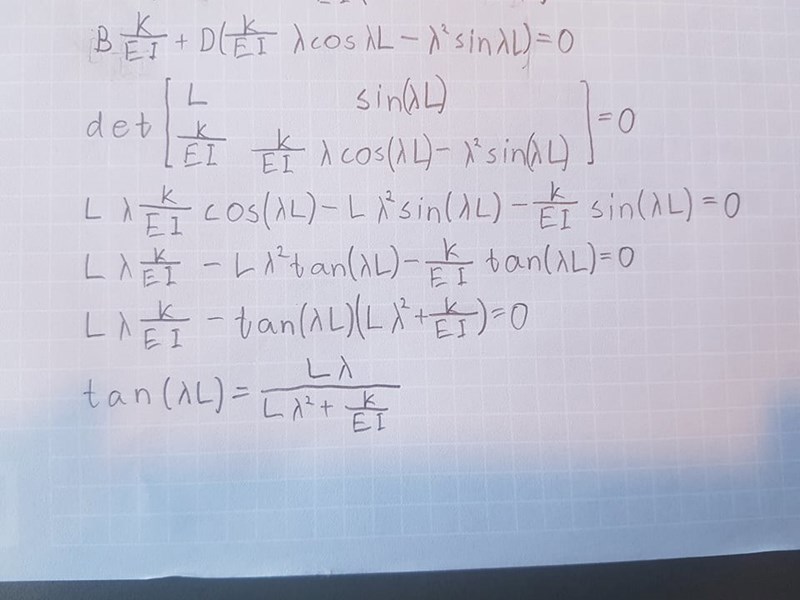 B K/EI + D(k/EI λcosλL − λ²sinλL)=0
det [ L sin(λL) ; k/EI k/EI λcos(λL) − λ²sin(λL) ] =0
L λ k/EI cos(λL) − L λ²sin(λL) − k/EI sin(λL) = 0
L λ k/EI − L λ²tan(λL) − k/EI tan(λL)=0
L λ k/EI − tan(λL)(L λ² + k/EI)=0
tan(λL) = Lλ / (Lλ² + k/EI)